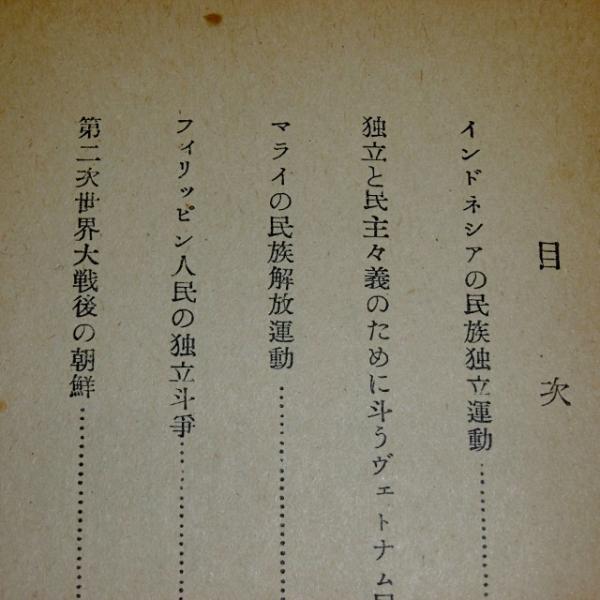 目次
インドネシアの民族独立運動
独立と民主々義のために斗うヴェトナム
マライの民族解放運動
フィリッピン人民の独立斗爭
第二次世界大戦後の朝鮮